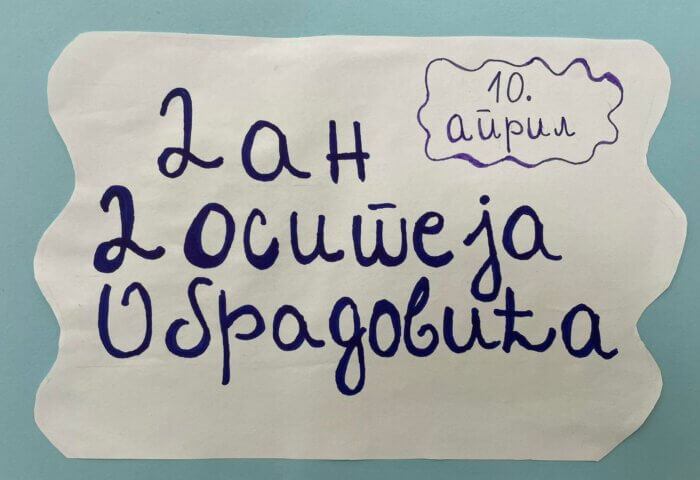 10.
април
Дан
Доситеја
Обрадовића